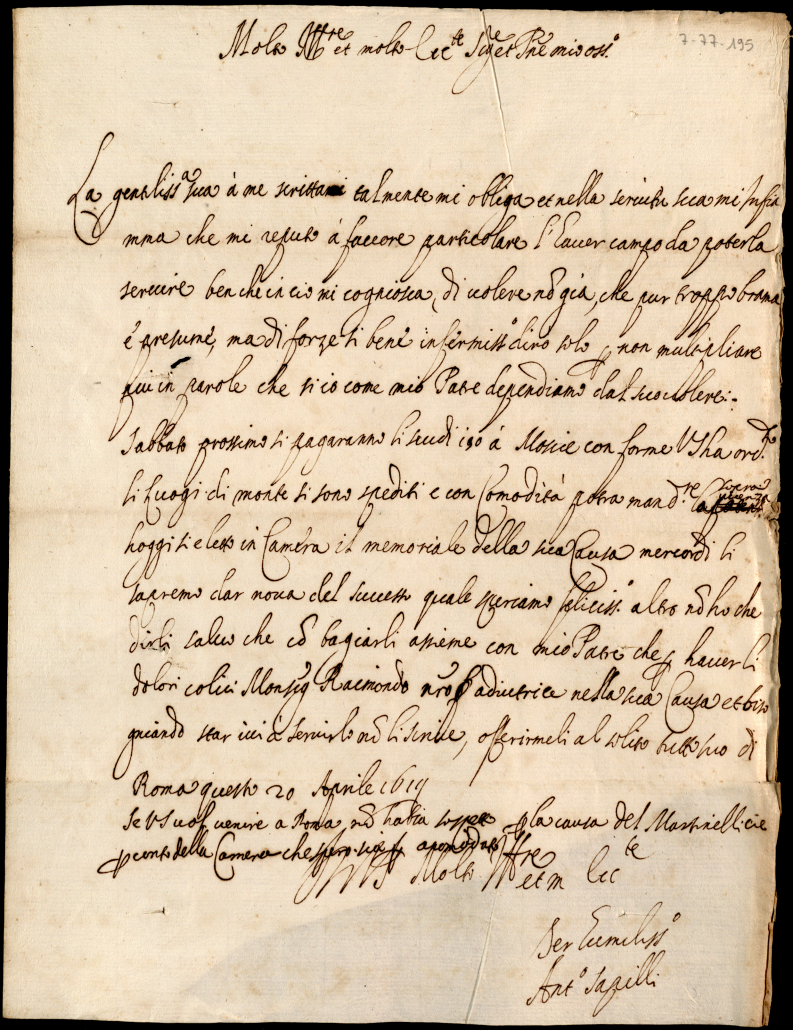 Molto Ill.re et molto Ecc.te Sig.re et Pne mio oss.o
7-77-195
La gentiliss.a sua à me scritta talmente mi obliga et nella servitù sua mi
mma che mi reputo à favore particolare l'haver campo da poterla
servire benche in cio mi cogniosca, di volere nō già, che pur troppo brama
e presume, ma di forze si bene infermiss.o diro solo p non multipliare
piu in parole che si io come mio Patre dependiamo dal suo volere:
Sabbato prossimo si pagaranno li scudi 190 à conforme VS ha ord.to
li luogi di monte si sono spediti e con Comodità potra mand.re la
hoggi si e letto in Camera il memoriale della sua Causa mercordi li
sapremo dar nova del successo quale speriamo feliciss.o altro nō ho che
dirli salvo che cō bagiarli assieme con mio Patre che p haver li
dolori colici Monsig Raimondo nro adiutrice nella sua Causa et biso
gniando star ivi à servirlo nō li scrive, offerirmeli al solito tutto suo di
Roma questo 20 Aprile 1619
Se VS vol venire a Roma nō habia sospetto p la causa del Martinelli cie
p conto della Camera che spero sia
D VS Molto Ill.re et m Ecc.te
Ser humiliss.o
Ant.o Sapilli